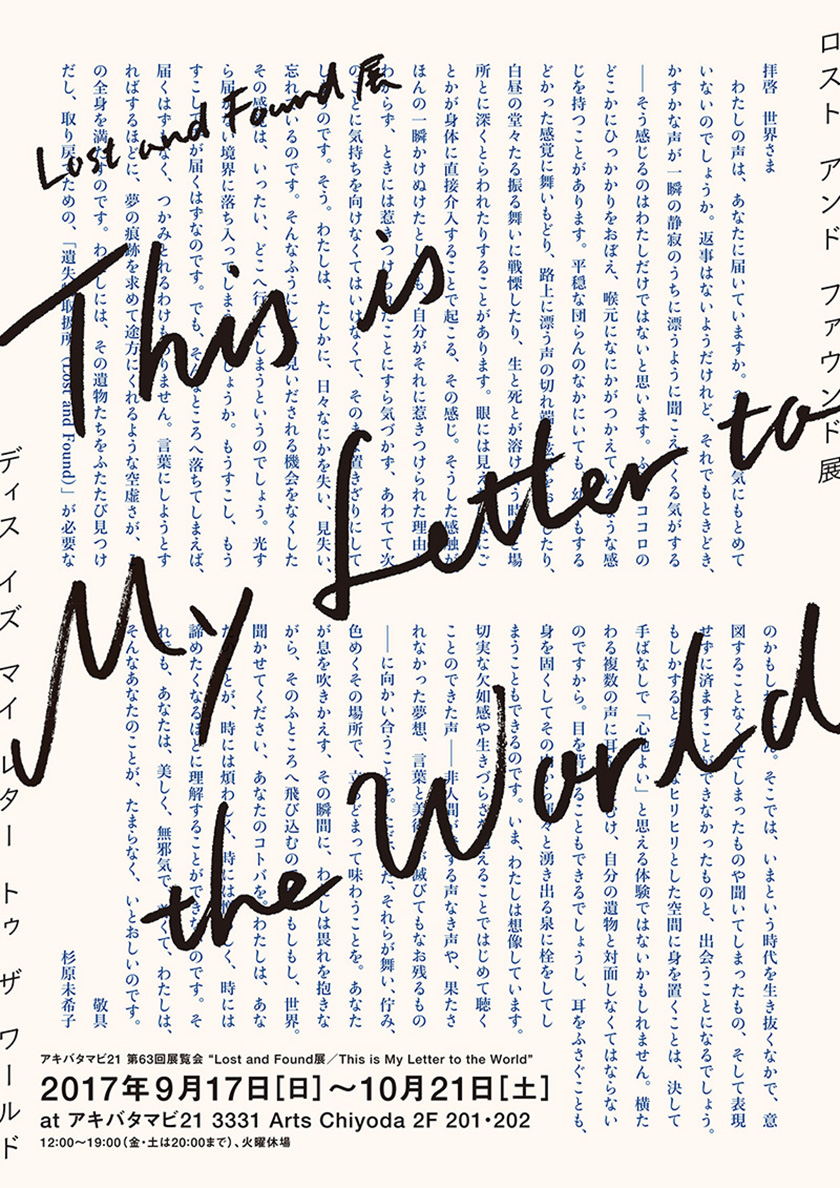 ロスト アンド ファウンド展
Lost and Found 展
This is
My Letter to
the World
ディス イズ マイ レター トゥ ザ ワールド
拝啓　世界さま
わたしの声は、あなたに届いていますか。気にもとめて
いないのでしょうか。返事はないようだけれど、それでもときどき、
かすかな声が一瞬の静寂のうちに漂うように聞こえてくる気がする
――そう感じるのはわたしだけではないと思います。ココロの
どこかにひっかかりをおぼえ、喉元になにかがつかえているような感
じを持つことがあります。平穏な団らんのなかにいても、もする
どかった感覚に舞いもどり、路上に漂う声の切れ端にしたり、
白昼の堂々たる振る舞いに戦慄したり、生と死とが溶けう時間と場
所とに深くとらわれたりすることがあります。眼には見えなにご
とかが身体に直接介入することで起こる、その感じ。そうした感触が
ほんの一瞬かけぬけたとしても、自分がそれに惹きつけられた理由
わからず、ときには惹きつけられたことにすら気づかず、あわてて次
のことに気持ちを向けなくてはいけなくて、そのまま置きざりにして
しまうのです。そう。わたしは、たしかに、日々なにかを失い、見失い、
忘れているのです。そんなふうにして見いだされる機会をなくした
その感じは、いったい、どこへ行ってしまうというのでしょう。光す
ら届かない境界に落ち入ってしまうのでしょうか。もうすこし、もう
すこしで手が届くはずなのです。でも、そんなところへ落ちてしまえば、
届くはずもなく、つかみとれるわけもありません。言葉にしようとす
ればするほどに、夢の痕跡を求めて途方にくれるような空虚さが、
の全身を満たすのです。わたしには、その遺物たちをふたたび見つけ
だし、取り戻すための、「遺失物取扱所（Lost and Found）」が必要な
のかもしれません。そこでは、いまという時代を生き抜くなかで、意
図することなく見てしまったものや聞いてしまったもの、そして表現
せずに済ますことができなかったものと、出会うことになるでしょう。
もしかすると、そんなヒリヒリとした空間に身を置くことは、決して
手ばなしで「心地よい」と思える体験ではないかもしれません。横た
わる複数の声に耳をかたむけ、自分の遺物と対面しなくてはならない
のですから。目を背けることもできるでしょうし、耳をふさぐことも、
身を固くしてその内から淡々と湧き出る泉に栓をしてし
まうこともできるのです。いま、わたしは想像しています。
切実な欠如感や生きづらさを抱えることではじめて聴く
ことのできた声――非人間がする声なき声や、果たさ
れなかった夢想、言葉と美術が滅びてもなお残るもの
――に向かい合うことを。それらが舞い、佇み、
色めくその場所で、立ちどまって味わうことを。あなた
が息を吹きかえす、その瞬間に、わたしは畏れを抱きな
がら、そのふところへ飛び込むのもしもし、世界。
聞かせてください、あなたのコトバを。わたしは、あな
たのことが、時には煩わしく、時には憎しく、時には
諦めたくなるほどに理解することができないのです。そ
れでも、あなたは、美しく、無邪気で、くて、わたしは、
そんなあなたのことが、たまらなく、いとおしいのです。
敬具
杉原未希子
アキバタマビ21 第63回展覧会 “Lost and Found展／This is My Letter to the World”
2017年9月17日[日]〜10月21日[土]
at アキバタマビ21 3331 Arts Chiyoda 2F 201・202
12:00〜19:00（金・土は20:00まで）、火曜休場